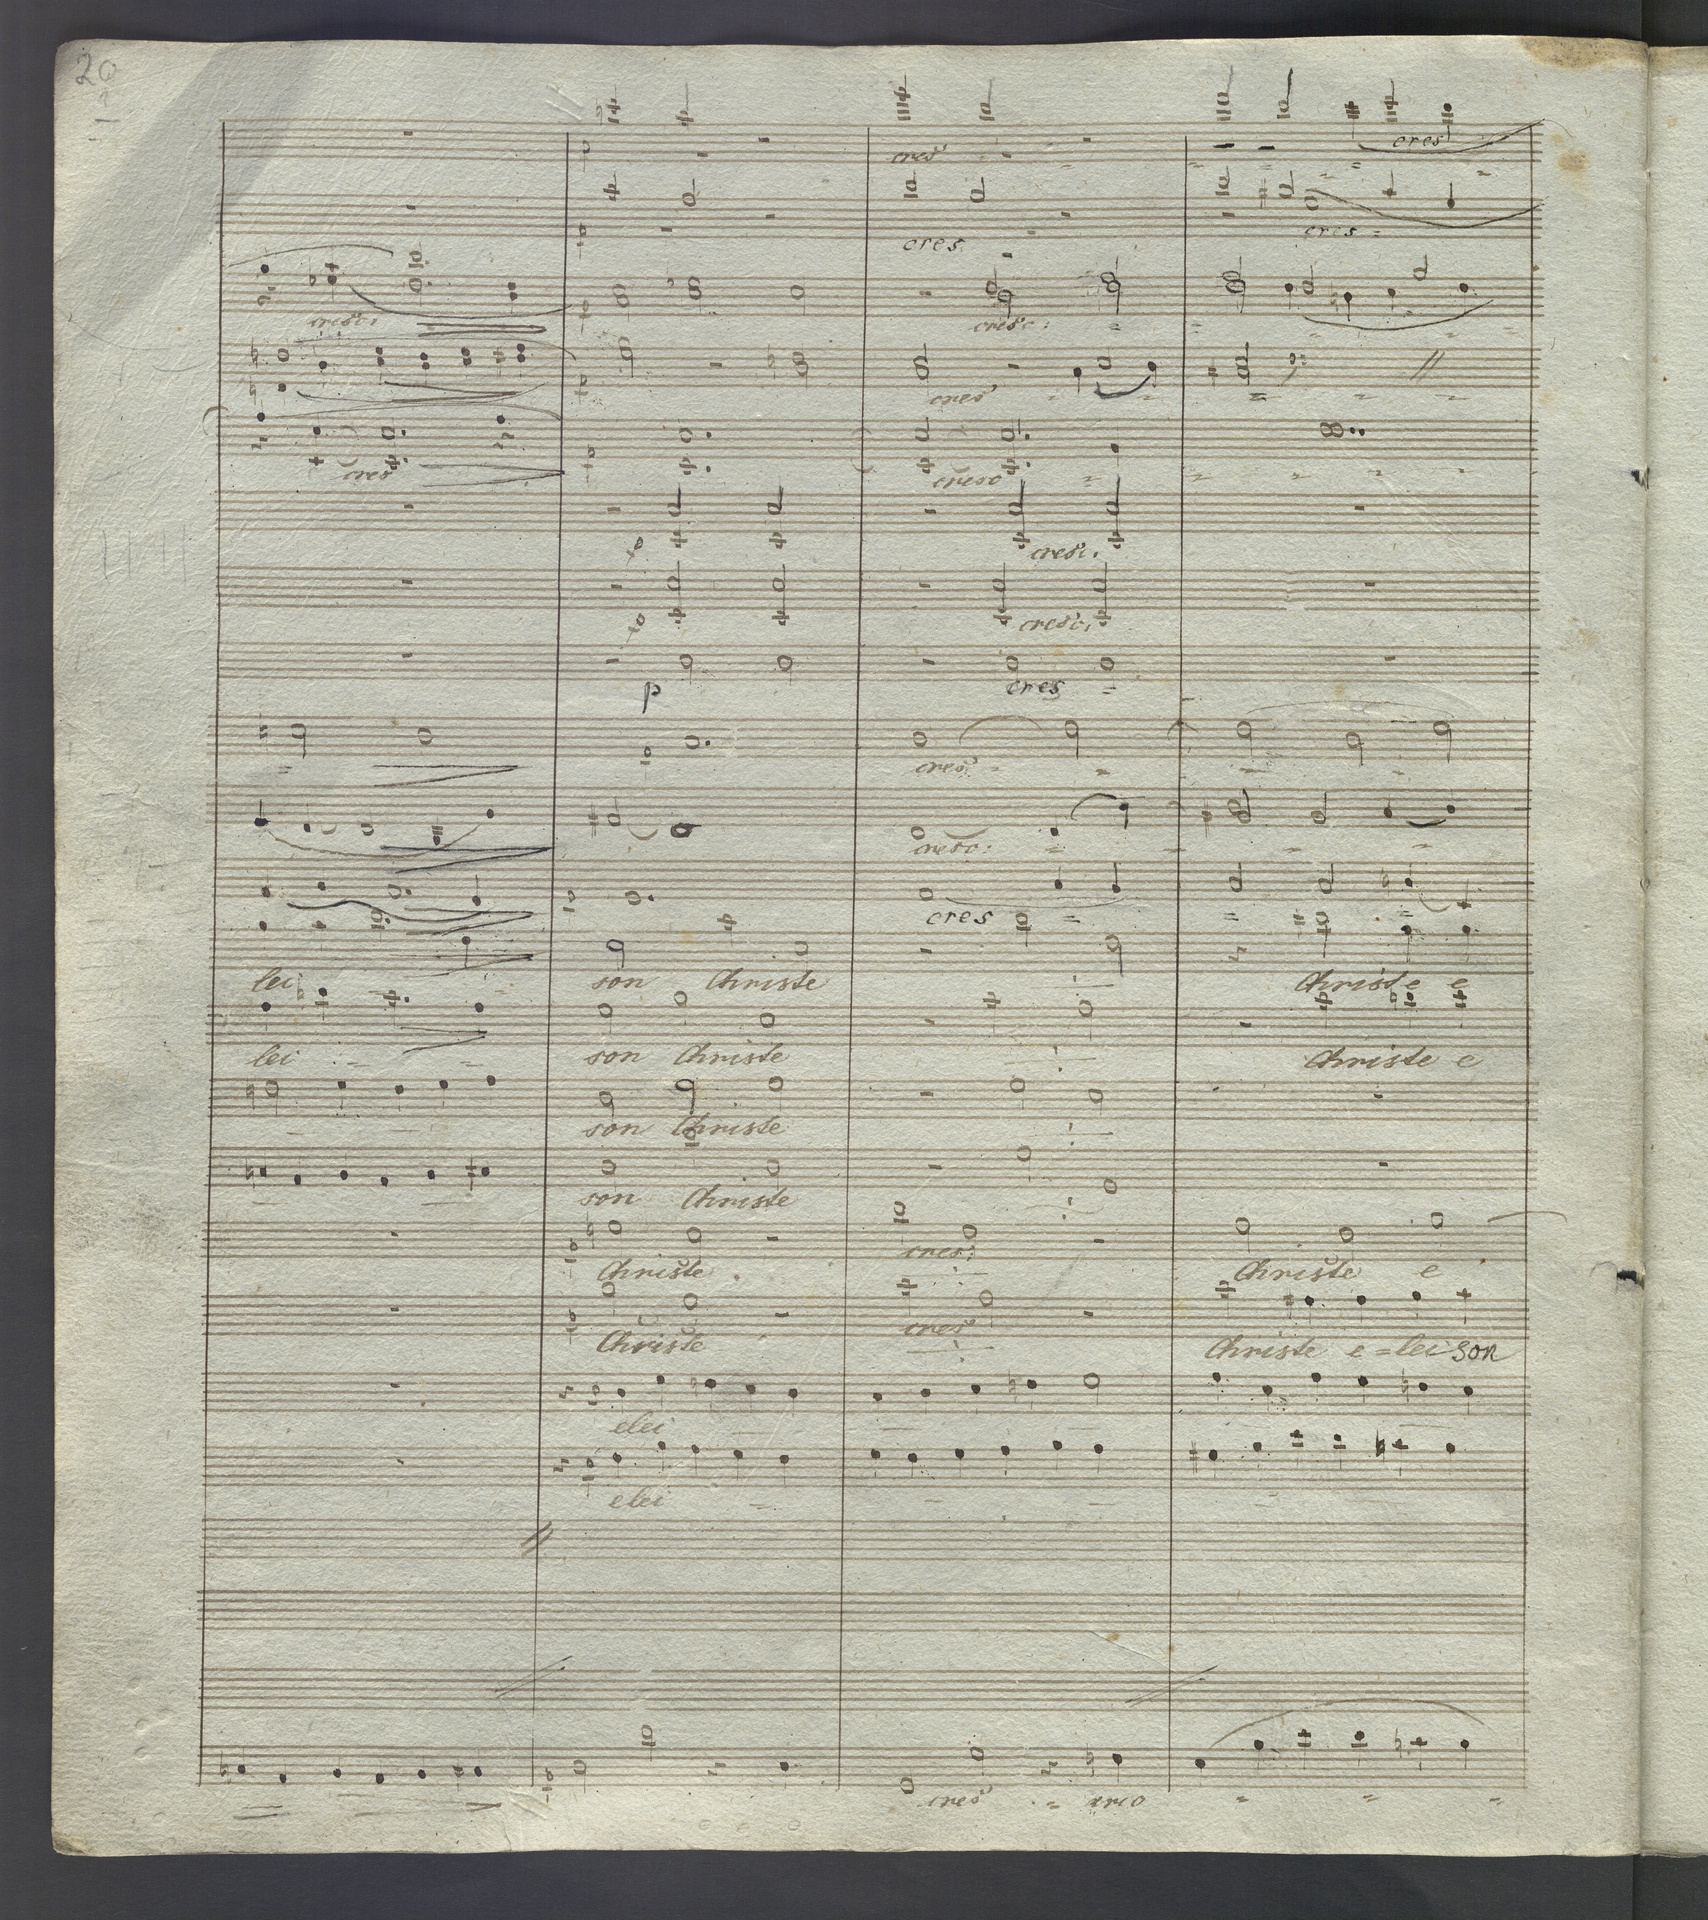 20
cres
p cres
cres =
cresc:
p cresc: =
p cres' =
cres
p cresc =
p cresc.
p cresc.
p cres =
p cres =
cresc: =
p cres =
lei son Christe Christe e
lei = = son Christe Christe e
son Christe
son Christe
p Christe cres: Christe e
p Christe cres Christe e = lei son
p elei
p elei
p cres = arco